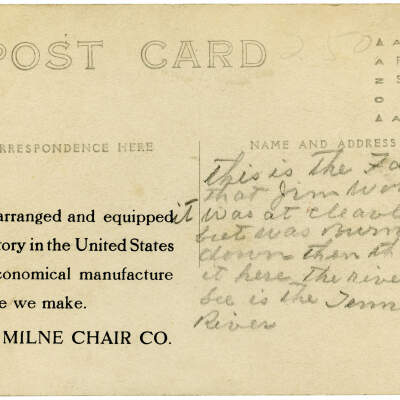 POST CARD
250
RRESPONDENCE HERE
NAME AND ADDRESS
arranged and equipped
tory in the United States
conomical manufacture
e we make.
MILNE CHAIR CO.
this is the Fa
that Jim Wor
it was at cleavl
but was burn
down then th
it here the rive
see is the Tenn
River